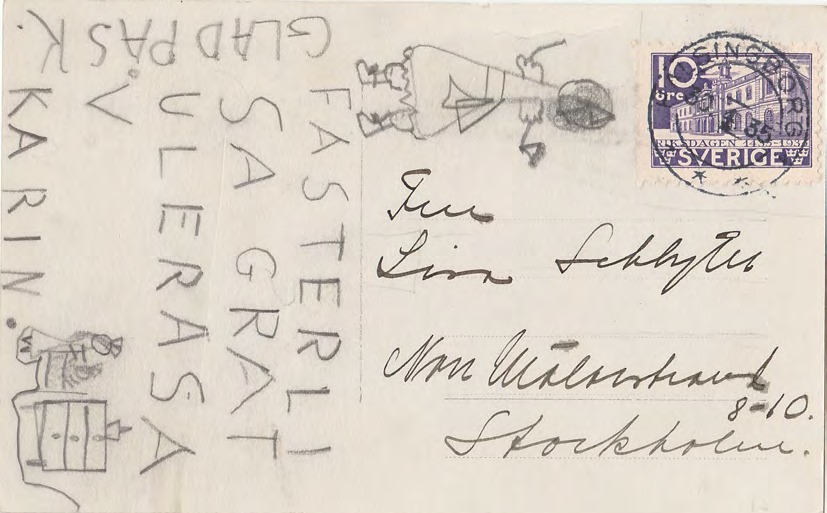 GLAD PÅSK.
FASTERLI
SA GRAT
ULERASA
V
KARIN.
10
öre
RIKSDAGEN 1435-193
SVERIGE
SINGBORG
35
Fru
Lisa Schlyter
Norr Mälarstrand
8-10.
Stockholm.